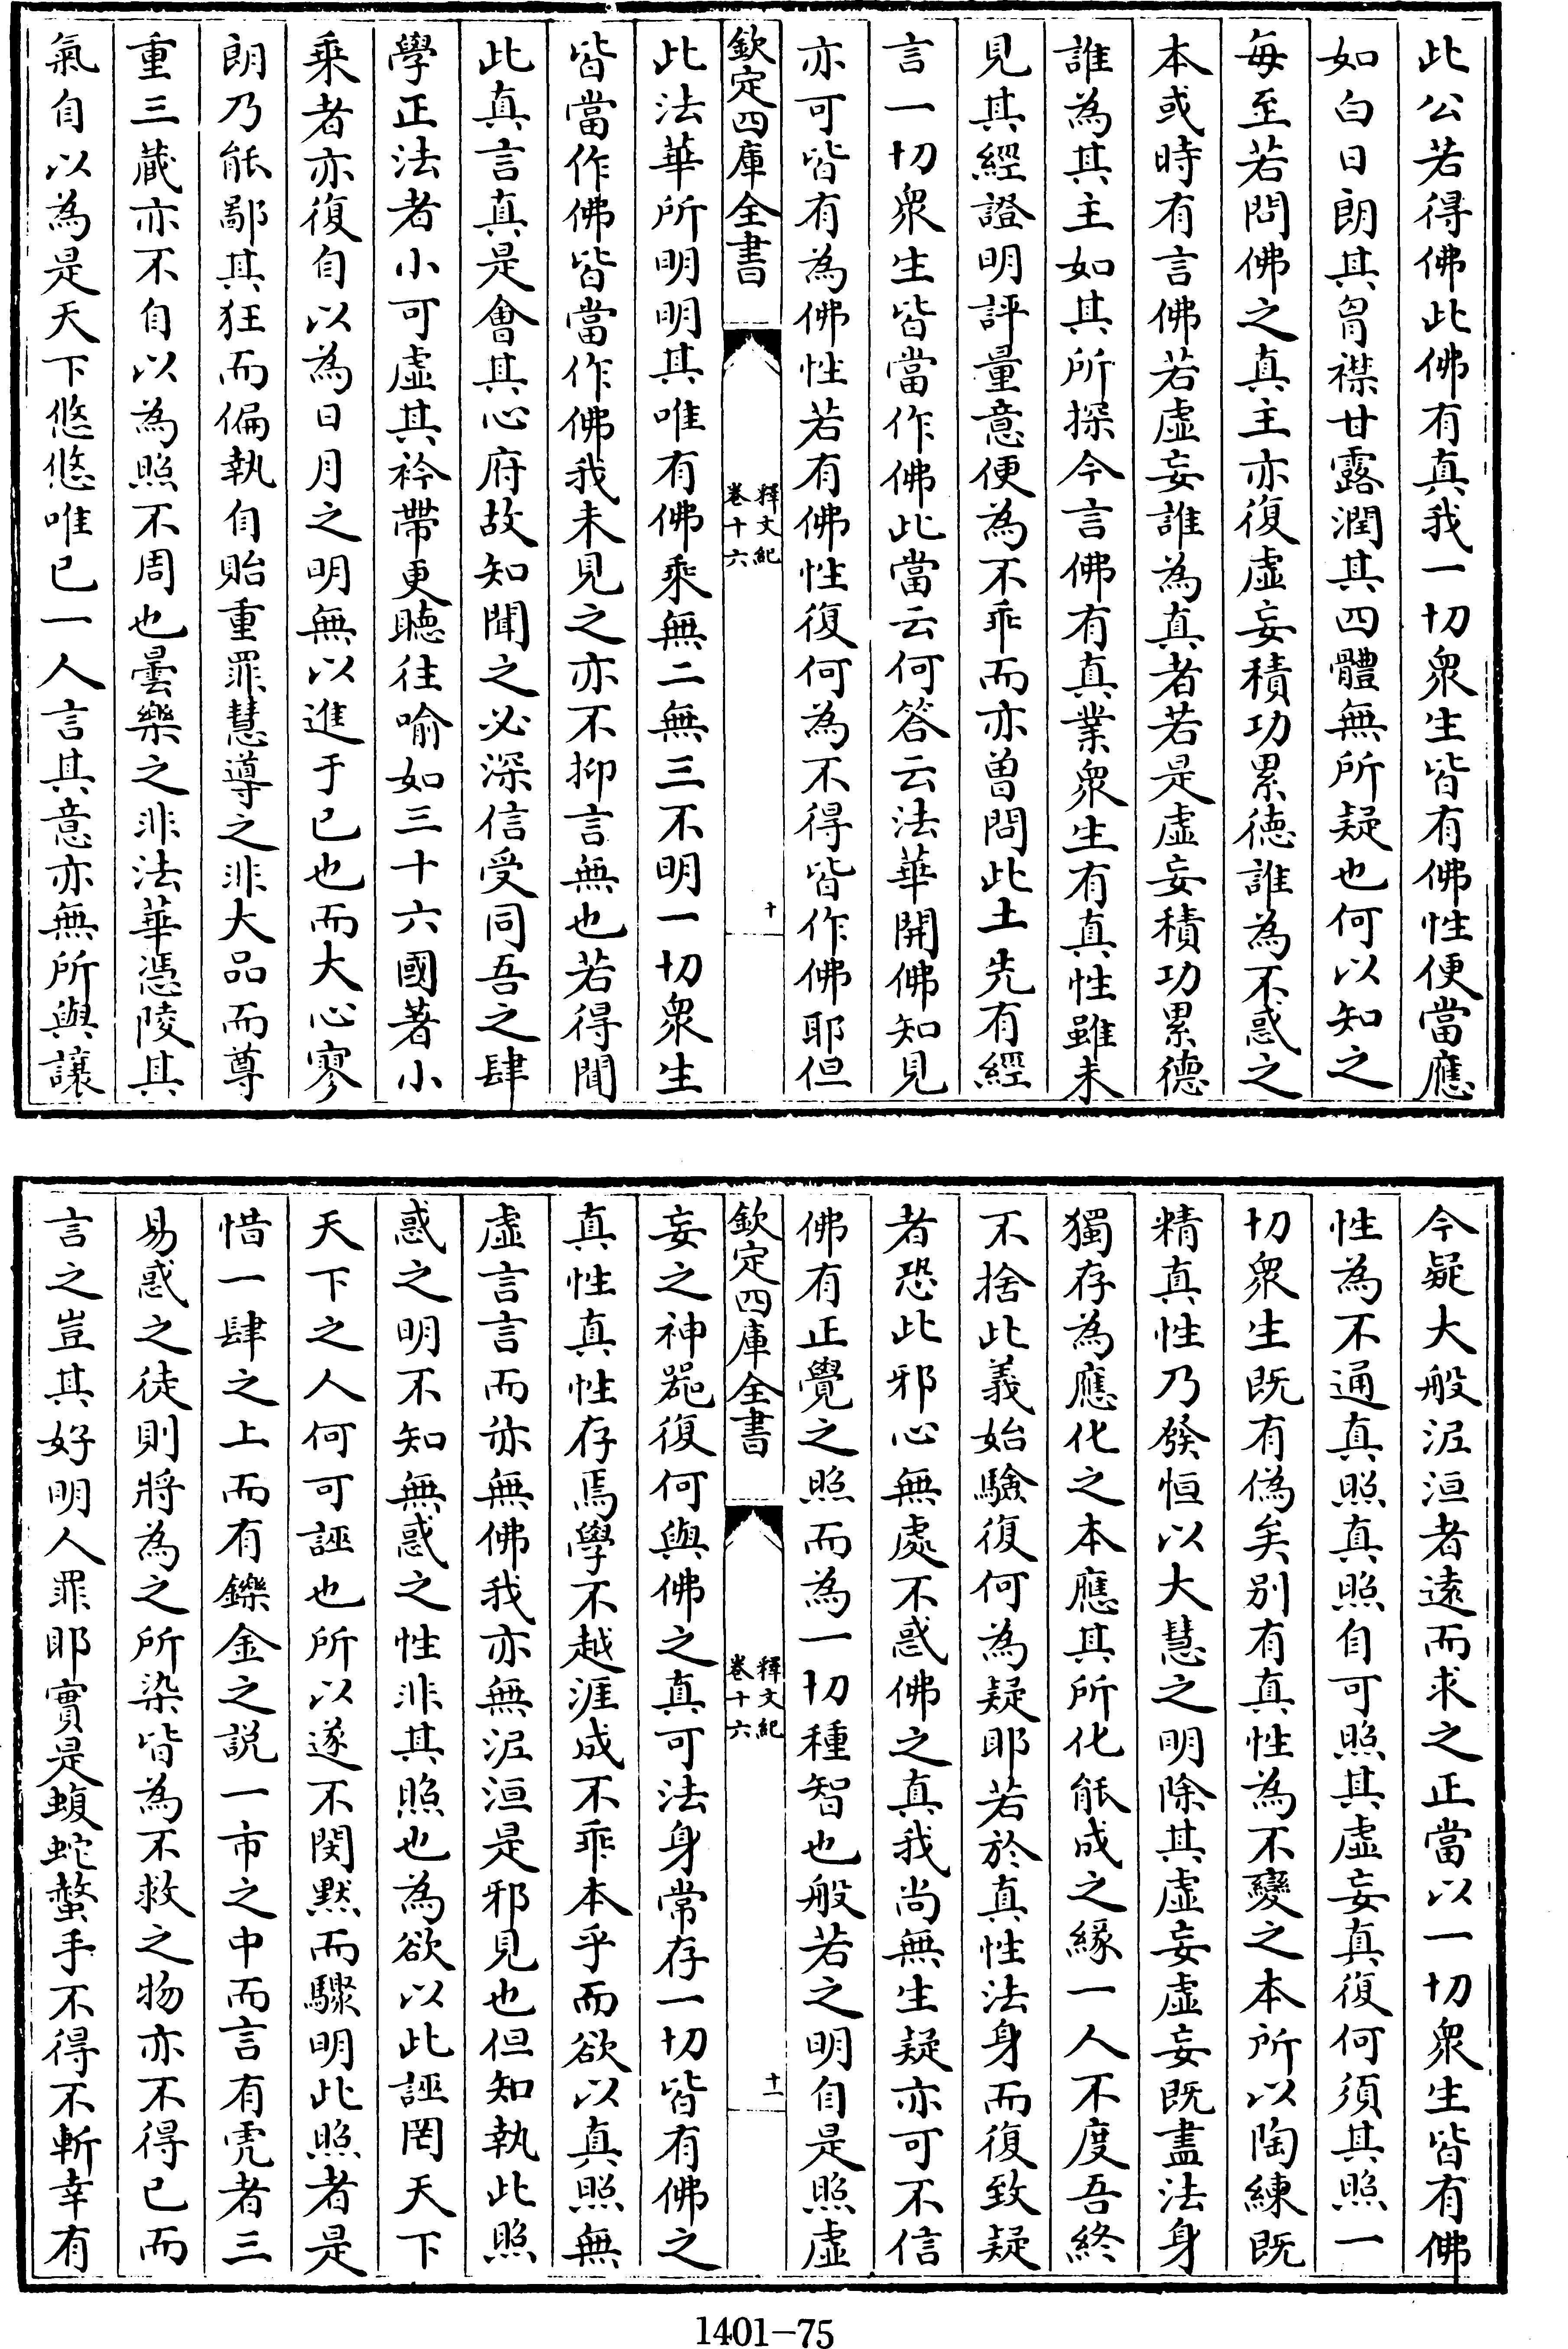 此公若得佛此佛有真我一切衆生皆有佛性便當應
如白日朗其胷襟甘露潤其四體無所疑也何以知之
每至若問佛之真主亦復虛妄積功累德誰為不惑之
本或時有言佛若虛妄誰為真者若是虛妄積功累德
誰為其主如其所探今言佛有真業衆生有真性雖未
見其經證明評量意便為不乖而亦曽問此土先有經
言一切衆生皆當作佛此當云何答云法華開佛知見
亦可皆有為佛性若有佛性復何為不得皆作佛耶但
欽定四庫全書
釋文紀
卷十六
十
此法華所明明其唯有佛乘無二無三不明一切衆生
皆當作佛皆當作佛我未見之亦不抑言無也若得聞
此真言真是會其心府故知聞之必深信受同吾之肆
學正法者小可虛其衿帶更聴往喻如三十六國著小
乘者亦復自以為日月之明無以進于已也而大心寥
朗乃能鄙其狂而偏執自貽重罪慧導之非大品而尊
重三藏亦不自以為照不周也曇樂之非法華憑陵其
氣自以為是天下悠悠唯已一人言其意亦無所與讓
今疑大般泥洹者遠而求之正當以一切衆生皆有佛
性為不通真照真照自可照其虛妄真復何須其照一
切衆生既有偽矣別有真性為不變之本所以陶練既
精真性乃發恒以大慧之明除其虛妄虛妄既盡法身
獨存為應化之本應其所化能成之緣一人不度吾終
不捨此義始驗復何為疑耶若於真性法身而復致疑
者恐此邪心無處不惑佛之真我尚無生疑亦可不信
佛有正覺之照而為一切種智也般若之明自是照虛
欽定四庫全書
釋文紀
卷十六
十一
妄之神器復何與佛之真可法身常存一切皆有佛之
真性真性存焉學不越涯成不乖本乎而欲以真照無
虛言言而亦無佛我亦無泥洹是邪見也但知執此照
惑之明不知無惑之性非其照也為欲以此誣罔天下
天下之人何可誣也所以遂不閔黙而驟明此照者是
惜一肆之上而有鑠金之説一市之中而言有虎者三
易惑之徒則將為之所染皆為不救之物亦不得已而
言之豈其好明人罪耶實是蝮蛇螫手不得不斬幸有
1401-75